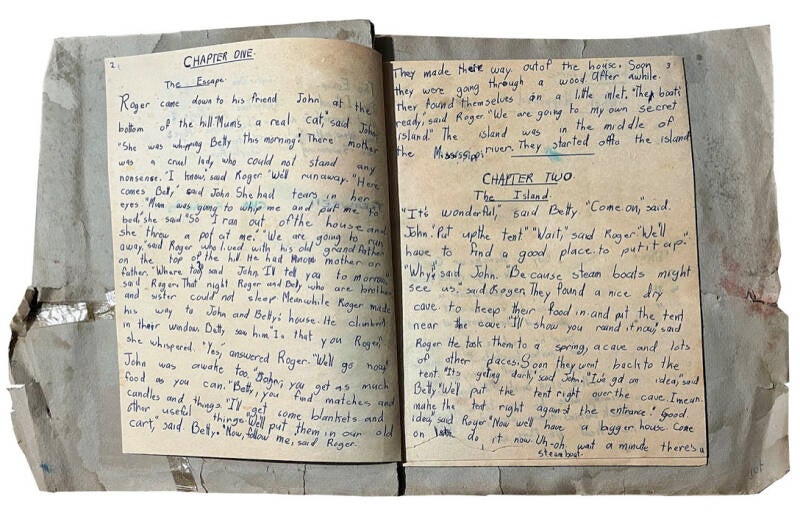 2.
CHAPTER ONE.
The Escape.
Roger came down to his friend John at the
bottom of the hill "Mums a real cat," said John
"She was whipping Betty this morning". There mother
was a cruel lady who could not stand any
nonsense. "I know," said Roger "We'll run away." "Here
comes Betty," said John She had tears in her
eyes "Mum was going to whip me and put me to
bed," she said "So I ran out of the house and
she threw a pot at me." "We are going to run
away," said Roger who lived with his old grandfather
on the top of the hill. He had no mother or
father. "Where to," said John I'll tell you to morrow,"
said Roger. That night Roger and Betty who are brother
and sister could not sleep. Meanwhile Roger made
his way to John and Betty's house. He climbed
in their window. Betty saw him. "Is that you Roger,"
she whispered. "Yes, answered Roger. "We'll go now,"
John was awake too. "John, you get as much
food as you can." "Betty, you find matches and
candles and things. "I'll get some blankets and
other useful things." We'll put them in our old
cart," said Betty. "Now, follow me, said Roger.
3
They made there way out of the house. Soon
they were going through a wood. After awhile
they found themselves in a little inlet. "The boats
ready," said Roger. "We are going to my own secret
island." The island was in the middle of
the Mississippi river. They started off to the island
CHAPTER TWO.
The Island.
"It's wonderful," said Betty "Come on," said
John. "Put up the tent" "Wait," said Roger "We'll
have to find a good place to put it up."
"Why", said John. "Because steam boats might
see us." said Roger. They found a nice dry
cave to keep their food in and put the tent
near the cave. I'll show you round it now," said
Roger He took them to a spring, a cave and lots
of other places. Soon they went back to the
tent. "It's getting dark," said John. "I've got an idea," said
Betty. "We'll put the tent right over the cave. I mean
make the tent right against the entrance." Good
idea," said Roger "Now we'll have a bigger house. Come
on lets do it now. Uh-oh, wait a minute there's a
steamboat.